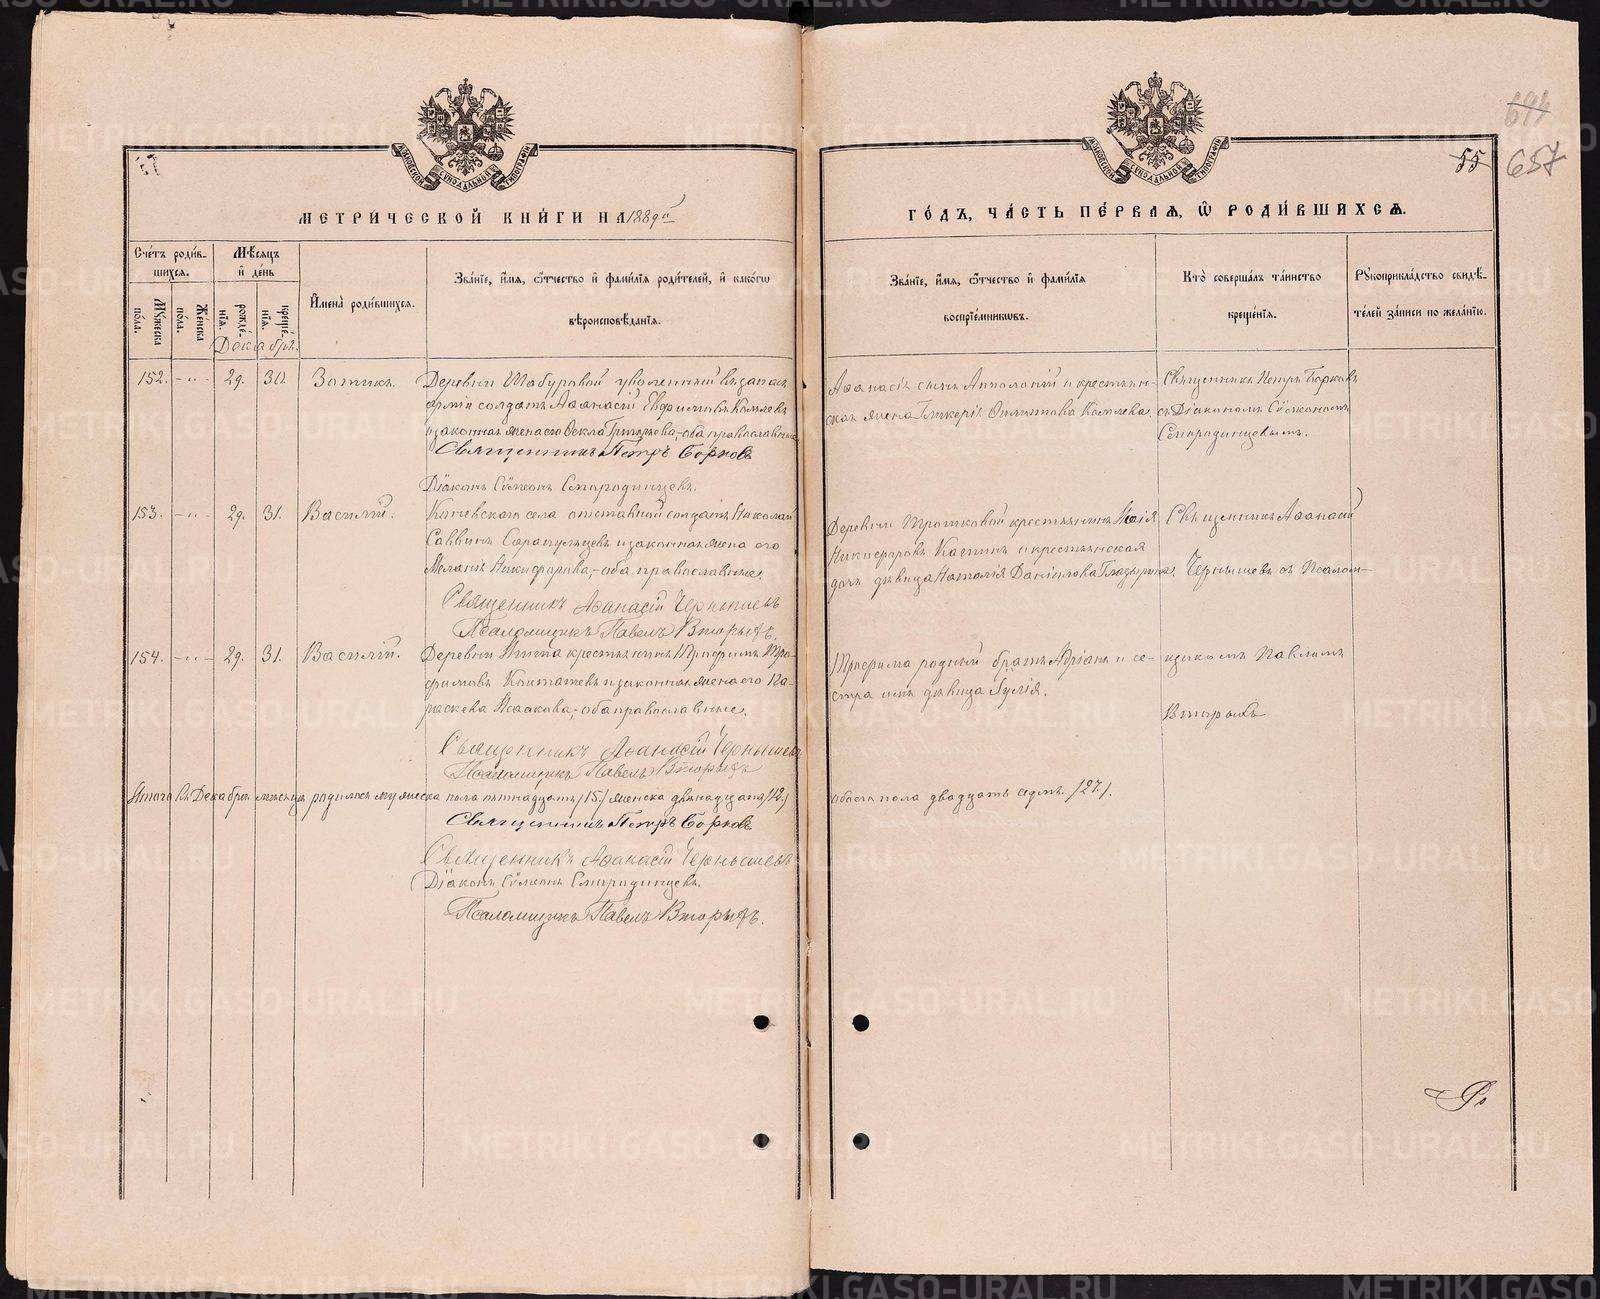 МЕТРИЧЕСКОЙ КНИГИ НА 1889й
ГОДЪ, ЧАСТЬ ПЕРВАЯ, Ѡ РОДИВШИХСЯ.
55
657
Счетъ родив-
шихся.
Мѣсяцъ
и день
Мужеска
пола.
Женска
пола.
рожде-
нія.
креще-
нія.
Декабрь.
Имена родившихся.
Званіе, имя, ѿчество и фамилія родителей, и какогѡ
вѣроисповѣданія.
Званіе, имя, ѿчество и фамилія
воспріемникѡвъ.
Кто совершалъ таинство
крещенія.
Рукоприкладство свидѣ-
телей записи по желанію.
152. -„- 29. 30. Зотикъ.
Деревни Шабуровой уволенный въ запасъ
арміи солдатъ Аѳанасій Евфимовъ Комлевъ
и законная жена его Ѳекла Григорьева,-оба православные
Священникъ Петръ Борковъ
Діаконъ Сѵмеонъ Смородинцевъ.
Аѳанасія сынъ Апполоній и крестьян-
ская жена Гликерія Филиппова Комлева.
Священникъ Петръ Борковъ
съ Діакономъ Сѵмеономъ
Смородинцевымъ.
153. -„- 29. 31. Василій.
села отставной солдатъ Николай
Саввинъ Сарапульцевъ и законная жена его
Меланія Никифорова,-оба православные.
Священникъ Аѳанасій Чернышевъ
Псаломщикъ Павелъ Вторыхъ.
Деревни крестьянинъ
Никифоровъ и крестьянская
дочь дѣвица Наталія Даніилова Гладырина.
Священникъ Аѳанасій
Чернышевъ съ Псалом-
154. -„- 29. 31. Василій.
Деревни крестьянинъ Трофимъ Тро-
фимовъ и законная жена его Па-
раскева Исаакова,-оба православные.
Священникъ Аѳанасій Чернышевъ
Псаломщикъ Павелъ Вторыхъ
Трофима родный братъ Адріанъ и се-
стра ихъ дѣвица Іулія.
щикомъ Павломъ
Вторыхъ
Итого въ Декабрѣ мѣсяцѣ родилось мужеска пола пятнадцать /15./ женска двѣнадцать /12./
обоего пола двадцать седмь /27./.
Священникъ Петръ Борковъ
Священникъ Аѳанасій Чернышевъ
Діаконъ Сѵмеонъ Смородинцевъ.
Псаломщикъ Павелъ Вторыхъ.
METRIKI.GASO-URAL.RU